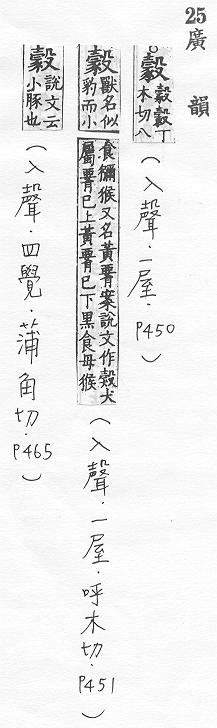 25
廣韻
豰 丁木切八
(入聲．一屋．P450)
豰 獸名似豹而小
食獼猴又名黃𦝫案說文作㺉犬
屬𦝫已上黃𦝫已下黑食母猴
(入聲．一屋．呼木切．P451)
豰 說文云小豚也
(入聲．四覺．蒲角切．P465)